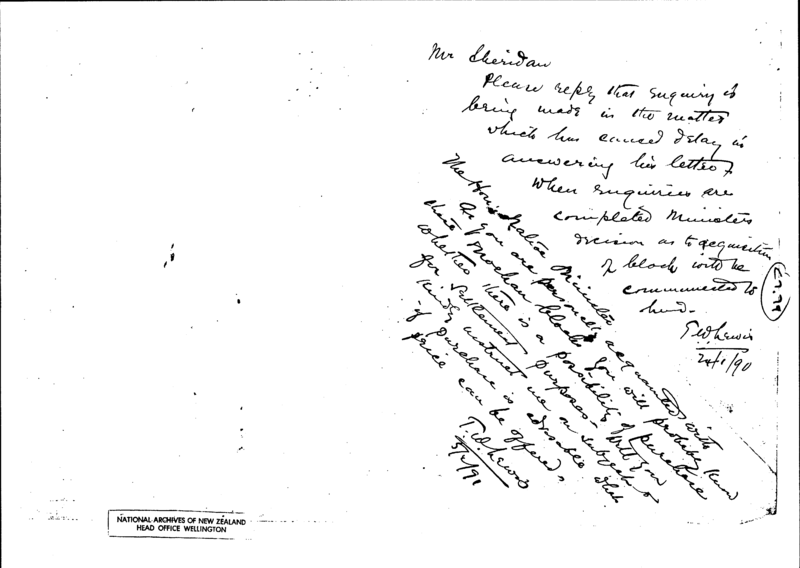 Mr Sheridan
Please reply that enquiry is
being made in the matter
which has caused delay in
answering his letter,
when enquiries are
completed Ministers
decision as to acquisition
of block will be
communicated to
him.
T.W. Lewis
24/1/90
The Hon. Native Minister
As you are personally acquainted with
this block you will probably know
whether there is a possibility of purchase
for settlement purposes. Will you
kindly instruct me on subject &
if purchase is advisable what
price can be offered.
T.W. Lewis
91
NATIONAL ARCHIVES OF NEW ZEALAND
HEAD OFFICE WELLINGTON